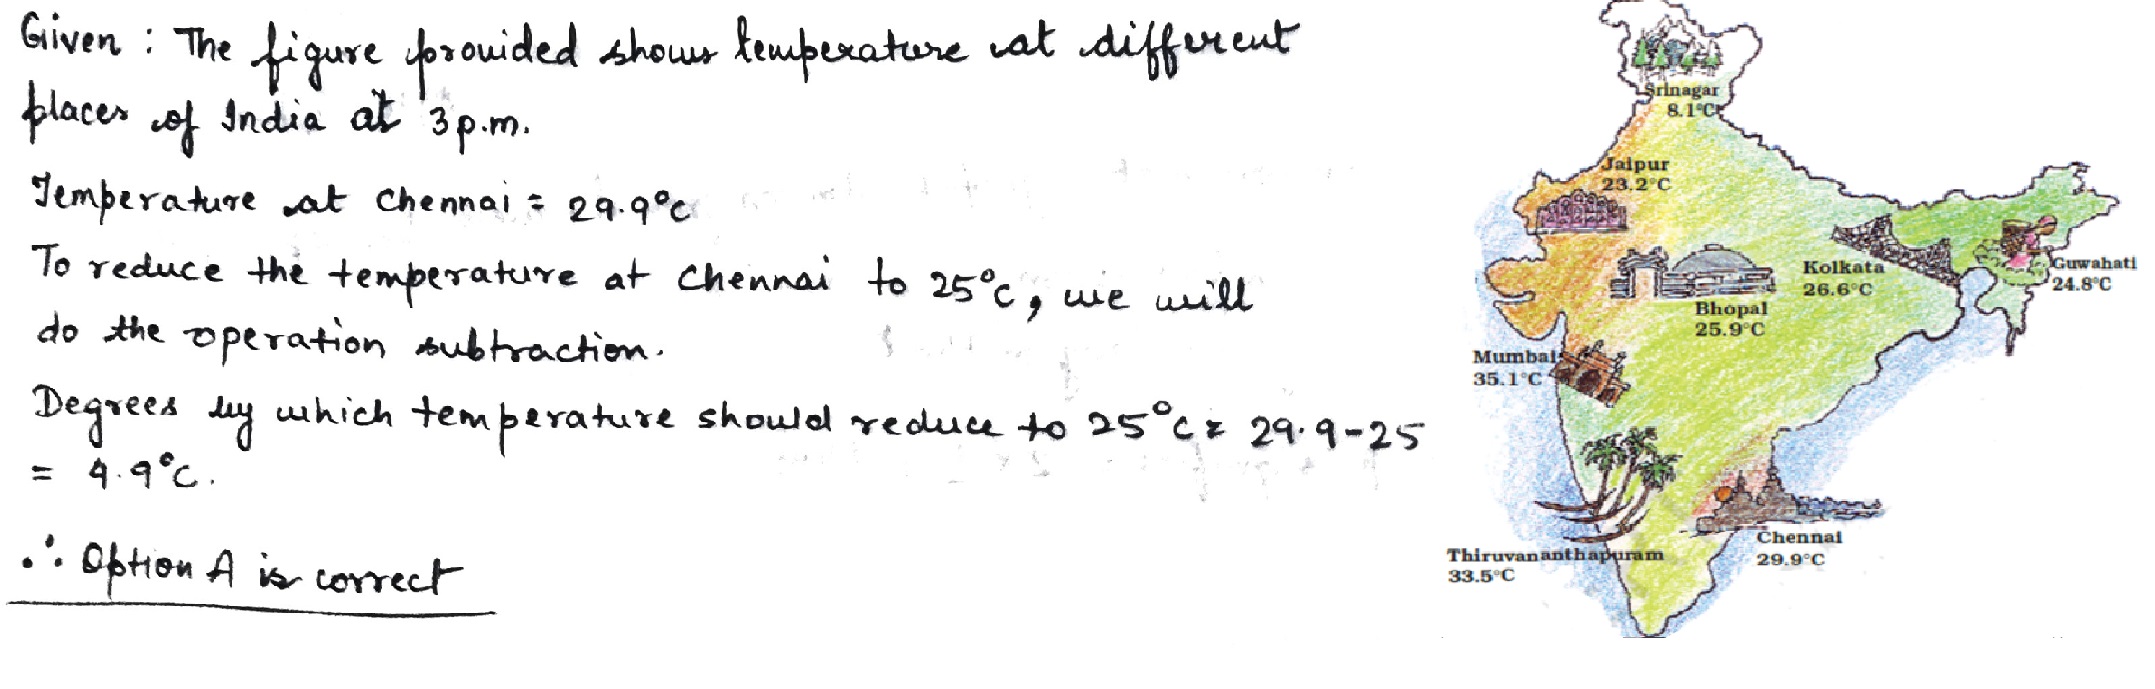 Given : The figure provided shows temperature at different
places of India at 3 p.m.
Temperature at Chennai = 29.9°c
To reduce the temperature at Chennai to 25°c, we will
do the operation subtraction.
Degrees by which temperature should reduce to 25°c = 29.9-25
= 4.9°c.
∴ Option A is correct
Srinagar
8.1°C
Jaipur
23.2°C
Kolkata
26.6°C
Guwahati
24.8°C
Bhopal
25.9°C
Mumbai
35.1°C
Chennai
29.9°C
Thiruvananthapuram
33.5°C